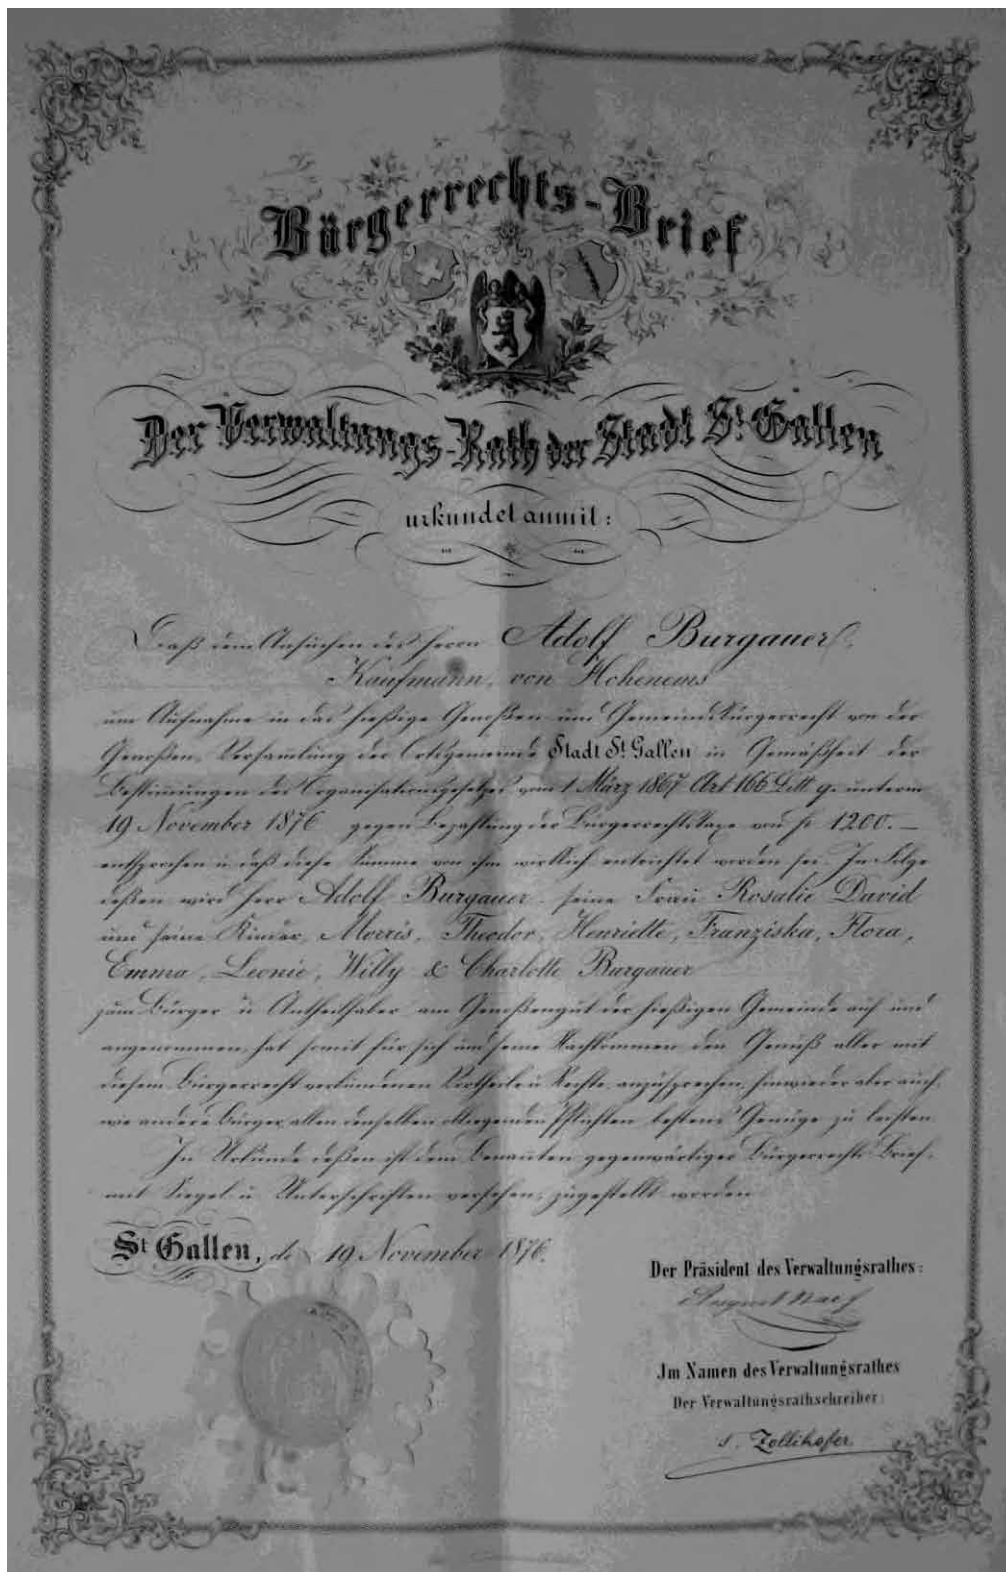 Bürgerrechts-Brief
Der Verwaltungs-Rath der Stadt St. Gallen
urkundet anmit:
Daß dem Ansuchen des Herrn Adolf Burgauer,
Kaufmann, von Hohenems
um Aufnahme in das hießige Genoßen- und Gemeindsbürgerrecht von der
Genoßen-Versamlung der Ortsgemeinde Stadt St. Gallen in Gemäßheit der
Bestimmungen des Organisationsgesetzes vom 1 März 1867 Art 166 Litt g. unterm
19 November 1876 gegen Bezahlung der Bürgerrechtstaxe von fr 1200.—
entsprochen u. daß diese Summe von ihm wirklich entrichtet worden sei. In Folge
deßen wird Herr Adolf Burgauer, seine Frau Rosalie David
und seine Kinder, Morris, Theodor, Henriette, Franziska, Flora,
Emma, Leonie, Willy & Charlotte Burgauer
zum Bürger u. Antheilhaber am Genoßengut der hießigen Gemeinde auf und
angenommen, hat somit für sich und seine Nachkommen den Genuß aller mit
diesem Bürgerrecht verbundenen Vortheile u. Rechte anzusprechen, hinwieder aber auch,
wie andere Bürger, allen denselben obliegenden Pflichten bestens Genüge zu leisten.
In Urkunde deßen ist dem Benannten gegenwärtiger Bürgerrechts-Brief,
mit Siegel u. Unterschriften versehen, zugestellt worden
St Gallen, d. 19 November 1876.
Der Präsident des Verwaltungsrathes:
August Naef
Im Namen des Verwaltungsrathes
Der Verwaltungsrathschreiber:
Zollikofer